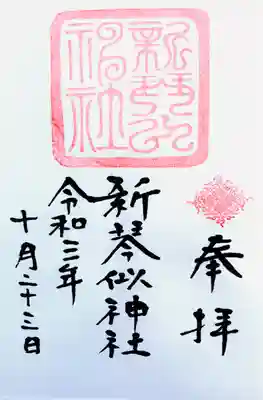 奉拝
新琴似神社
令和三年
十月二十三日
新琴似
神社